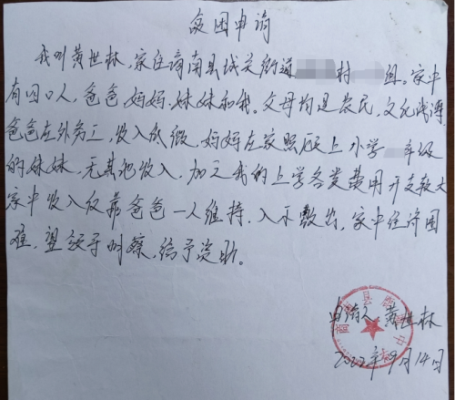 贫困申请
我叫黄世林，家住商南县城关街道村组。家中
有四口人，爸爸，妈妈，妹妹和我。父母均是农民，文化浅薄
爸爸在外务工，收入低微，妈妈在家照顾上小学年级
的妹妹，无其他收入，加之我的上学各类费用开支较大
家中收入仅靠爸爸一人维持，入不敷出，家中经济困
难，望给予明察，给予资助。
申请人 黄世林
2022年9月14日